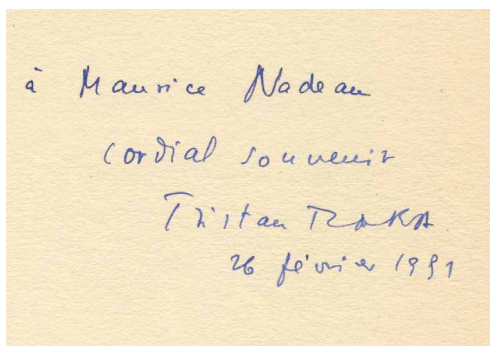 à Maurice Nadeau
cordial souvenir
Tristan TZARA
26 février 1951